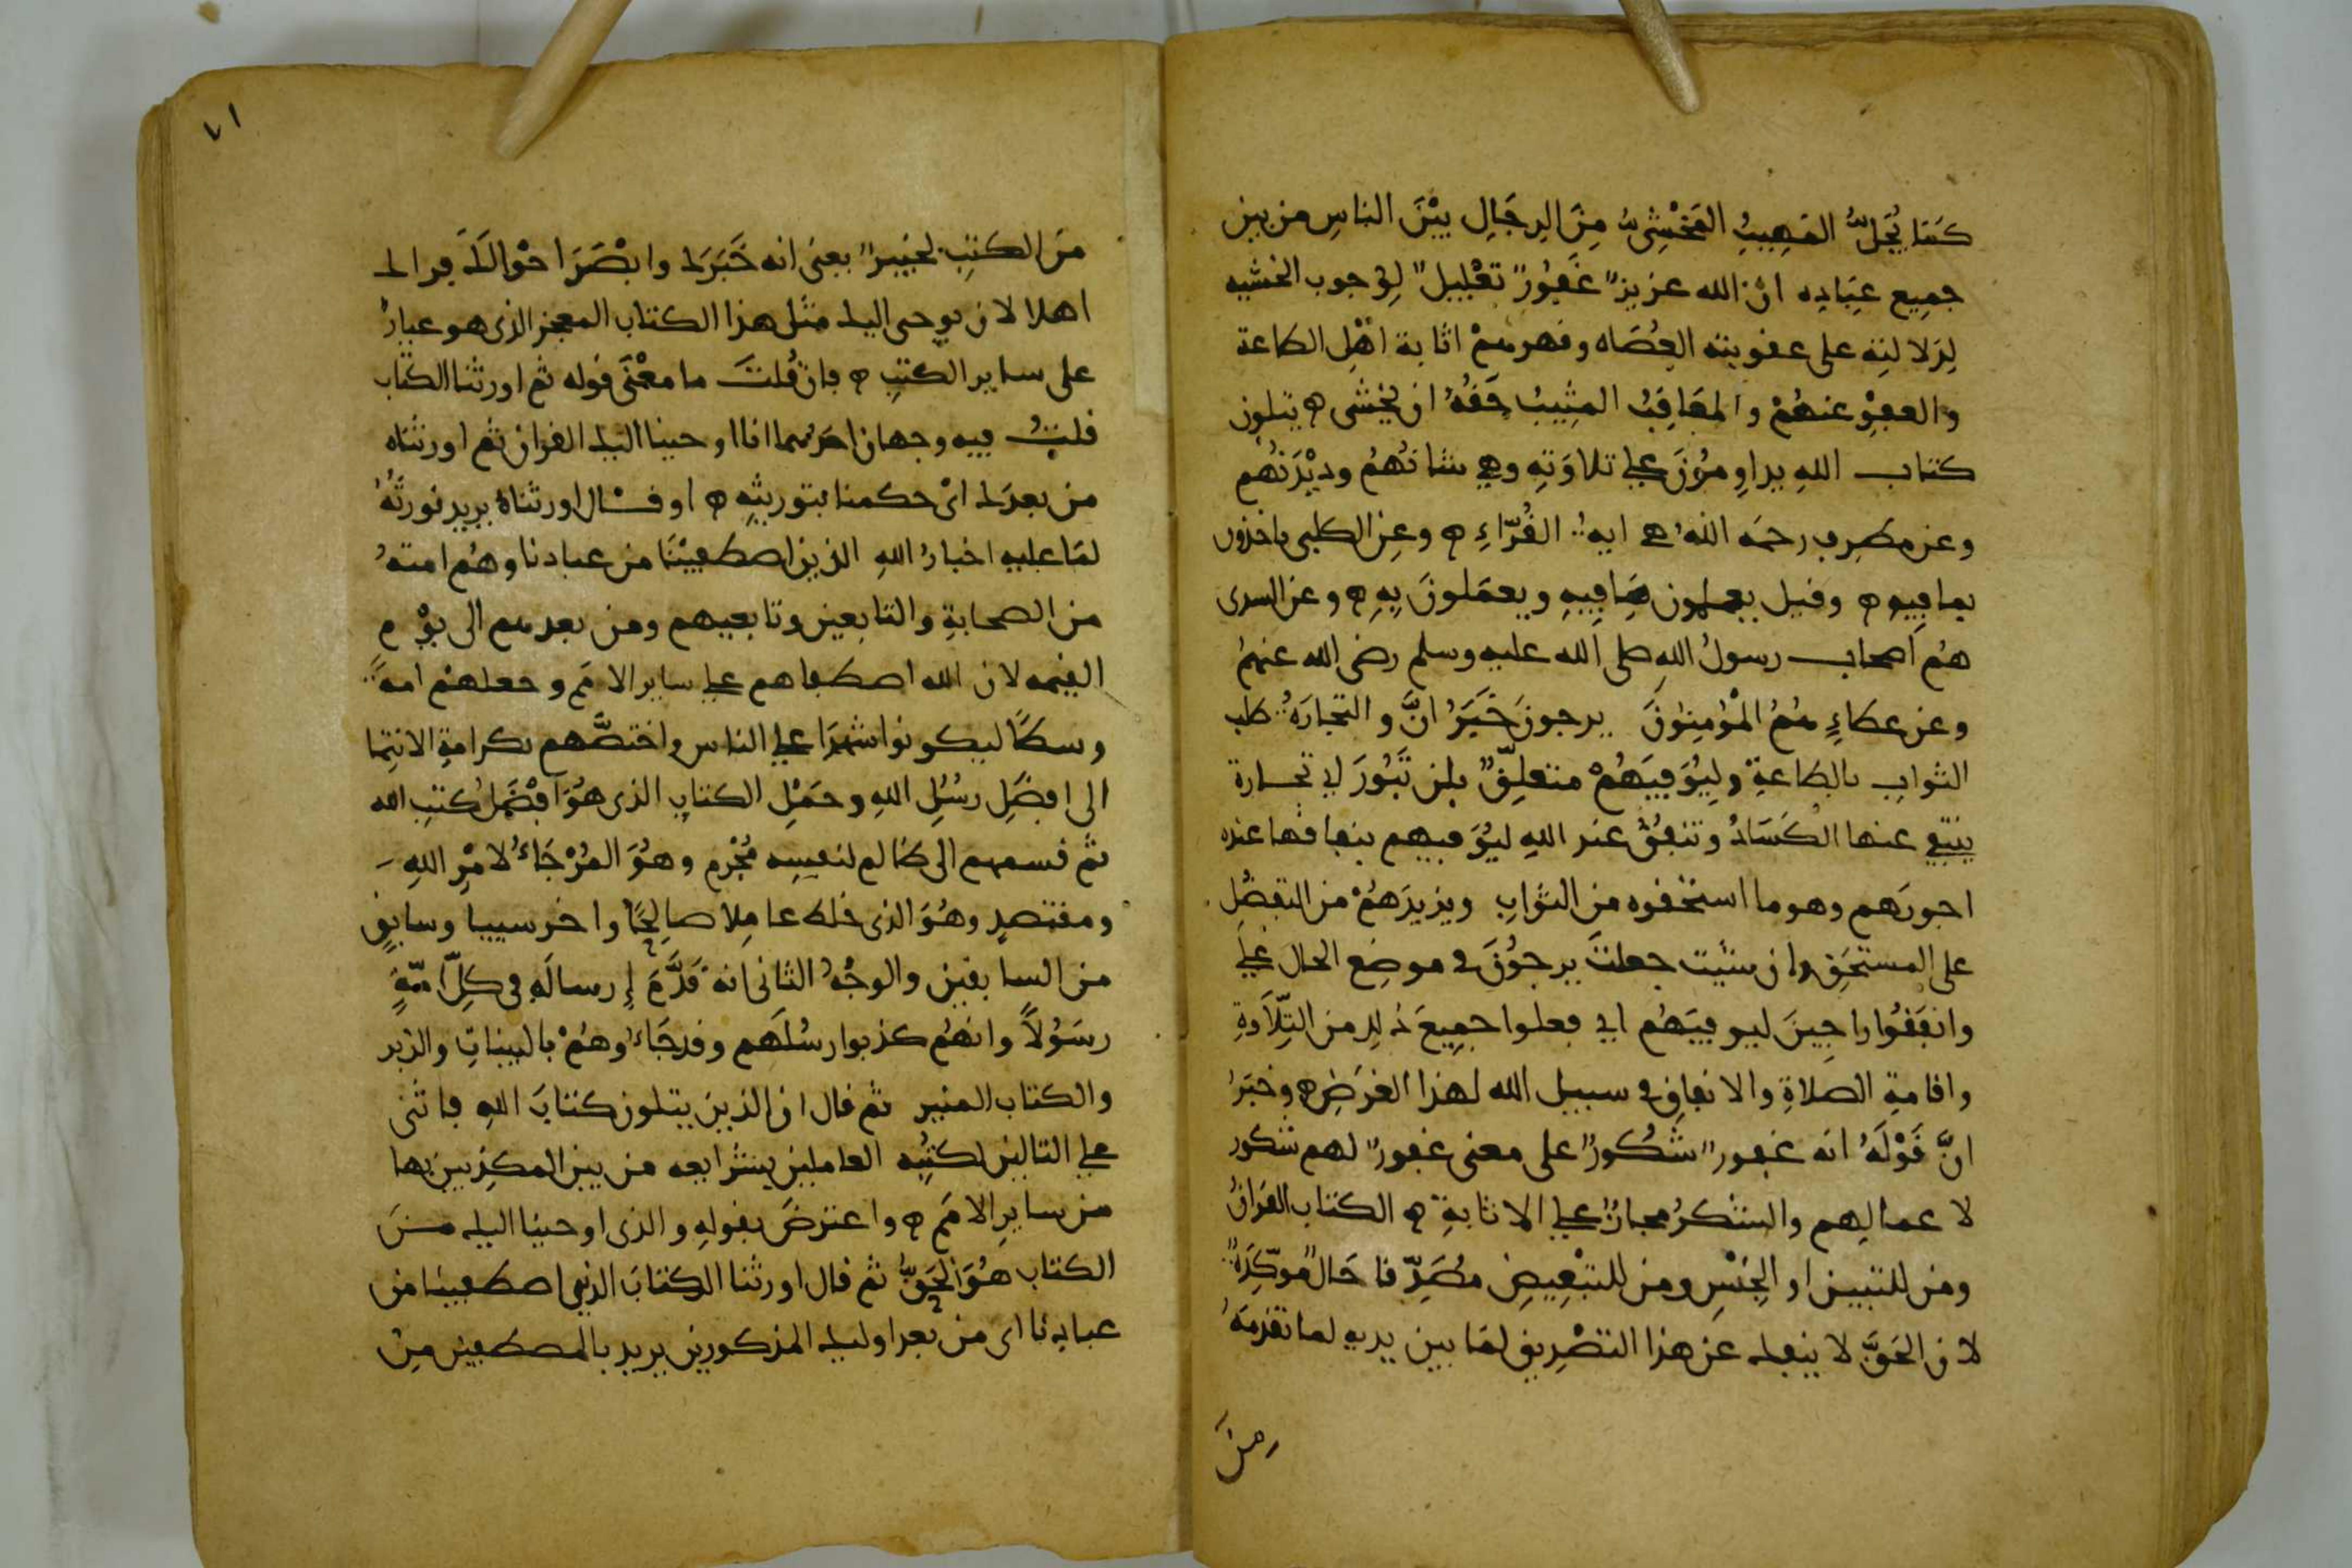 كَمَا يُجَلُّ المَهِيبُ المَخْشِىُّ مِنَ الرِجَالِ بَيْنَ الناسِ من بين
جميع عِبَادِه ان الله عزيز غَفُورٌ تعْلِيلٌ لِوُجوب الخشيه
لِدَلالتِه على عقوبته العُصَاه وقهرهمْ اثابة اهْلِ الطاعة
والعفْوِ عنهُمْ والمعَاقِبُ المثِيبُ حَقُّهُ ان يخشى ه يتلون
كتاب اللهِ يداوِمُونَ على تلاوَتِهِ وهي شانُهُمْ ودَيْدَنُهُم
وعن مطرِف رحمَه اللهُ هي ايةُ القُرّاءِ ه وعن الكلبى ياخذون
بما فِيهِ ه وقيل يعملون مَا فِيهِ ويعمَلونَ بِهِ ه وعن السدى
هُم اَصحاب رسولُ اللهِ صلى الله عليه وسلم رضى الله عنهمُ
وعن عطاءٍ هُمُ المؤْمِنونَ يرجونَ خَبَرُ انَّ والتجارَةُ طلب
الثوابِ بالطاعةِ ولِيُوَفِيَهُمْ متعلِقٌ بلن تَبُورَ اي تجارة
ينتفي عنها الكَسَادُ وتنفُقُ عند اللهِ ليُوَفيهم بنفاقها عنده
اجورَهم وهو ما استحقوه من الثوابِ ويزيدَهُمْ من التفضُلِ
على المستحَقِ وان شيت جعلتَ يرجوُنَ في موضِع الحال علَى
وانفَقُوا راجِينَ ليوفيَهُم اي فعلوا جمِيعَ ذلك من التِلَاوَةِ
واقامةِ الصلاةِ والانفاقِ في سبيل الله لهذا الغرَضِ ه وخبَرُ
انَّ قَوْلَهُ انه غفور شكُورٌ على معنى غفورٌ لهم شكور
لاعمالِهم والشكرُ مجازٌ على الاثابةِ ه الكتاب القرانُ
ومن للتبيين او الجِنْسِ ومن للتبعِيضِ مصَدِّقا حَالٌ موّكِدَةٌ
لان الحَقَّ لا ينفك عن هذا التصْدِيقِ لمَا بين يديه لما تقدمهُ
مِنَ
٧١
منَ الكتبِ لخبيرٌ يعنى انه خَبَرَك وابْصَرَ احْوالَكَ فراك
اهلا لان يوحى اليك مثل هذا الكتاب المعجز الذى هو عيارُ
على ساير الكتبِ ه فان قُلتَ ما معْنَى قوله ثم اورثنا الكتاب
قلتُ فيه وجهان احدُهما انا اوحينا اليك القران ثم اورثناه
من بعدَك اىْ حكمنا بتوريثِهِ ه او قال اورثناهُ يريد نورثُهُ
لمَا عليهِ اخبارُ اللهِ الذين اصطفيْنَا من عبادنا وهُم امتهُ
من الصحابةِ والتابعين وتابعيهم ومن بعدهم الى يوْم
القيمه لان الله اصطفاهم على ساير الامَم وجعلهمْ امةً
وسطًا ليكونوا شهَدَا على الناس واختصَّهم بكرامةِ الانتِمَا
الى افضَلِ رسُلِ اللهِ وحَمْلِ الكتابِ الذى هُوَ اَفْضَلُ كتبِ الله
ثم قسمهم الى ظالم لنفسِه مُجْرِمٍ وهُوَ المُرْجَاءُ لامْرِ اللهِ
ومقتصدٍ وهُوَ الذى خلط عامِلا صالِحًا واخر سييا وسابِقٍ
من السابقين والوجْهُ الثانى انهُ قَدَّمَ إِرسالَهِ فى كلِّ امّةٍ
رسُولاً وانهُم كذبوا رسُلَهم وقد جَاءُوهُمْ بالبيناتِ والزبر
والكتاب المنير ثم قال ان الذين يتلون كتابَ اللهِ فاثنى
على التالين لكتُبِه العاملين بشرايعه من بين المكذِبين بها
من سايرِ الامَم ه واعترضَ بقولهِ والذى اوحينا اليك منَ
الكتاب هُوَ الحَقُّ ثم قال اورثنا الكتابَ الذين اصطفينا من
عبادِنا اى من بعد اوليك المذكورين يريد بالمصطفين مِنْ